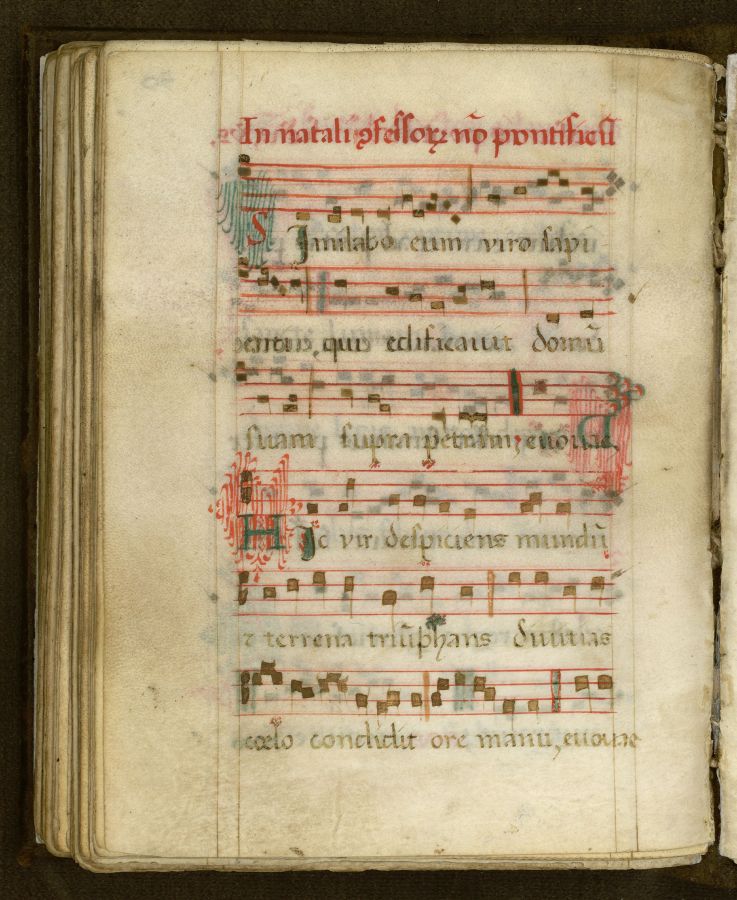 In natali ꝯfessoꝝ nõ pontificũ
Simílabo eum viro sapi
entis, quis edificauit domũ
suam supra petram; euouae.
Hic vir despiciens mundũ
⁊ terrena triũphans diuitias
cœlo condidit ore manu, euouae